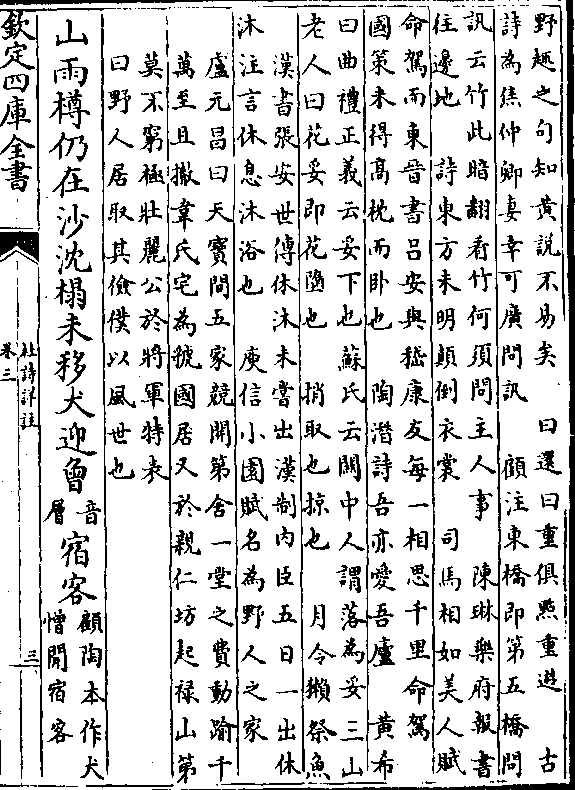 野趣之句知黄説不易矣　曰還曰重俱㸃重遊　古
詩為焦仲卿妻幸可廣問訊　顧注東橋即第五橋問
訊云竹此暗翻看竹何須問主人事　陳琳樂府報書
往邊地　詩東方未明顛倒衣裳　司馬相如美人賦
命駕而東晉書吕安與嵇康友每一相思千里命駕
國策未得高枕而卧也　陶潛詩吾亦愛吾廬　黄希
曰曲禮正義云妥下也　蘇氏云關中人謂落為妥三山
老人曰花妥即花隨也　捎取也掠也　月令獺祭魚
漢書張安世傳休沐未嘗出漢制内臣五日一出休
沐注言休息沐浴也　庾信小園賦名為野人之家
盧元昌曰天寶間五家競開第舍一堂之費動踰千
萬至且撤韋氏宅為虢國居又於親仁坊起禄山第
莫不窮極壯麗公於將軍特表
曰野人居取其儉僕以風世也
山雨樽仍在沙沈榻未移犬迎曾音層宿客顧陶本作犬憎閒宿客
欽定四庫全書
杜詩詳註
卷三
三